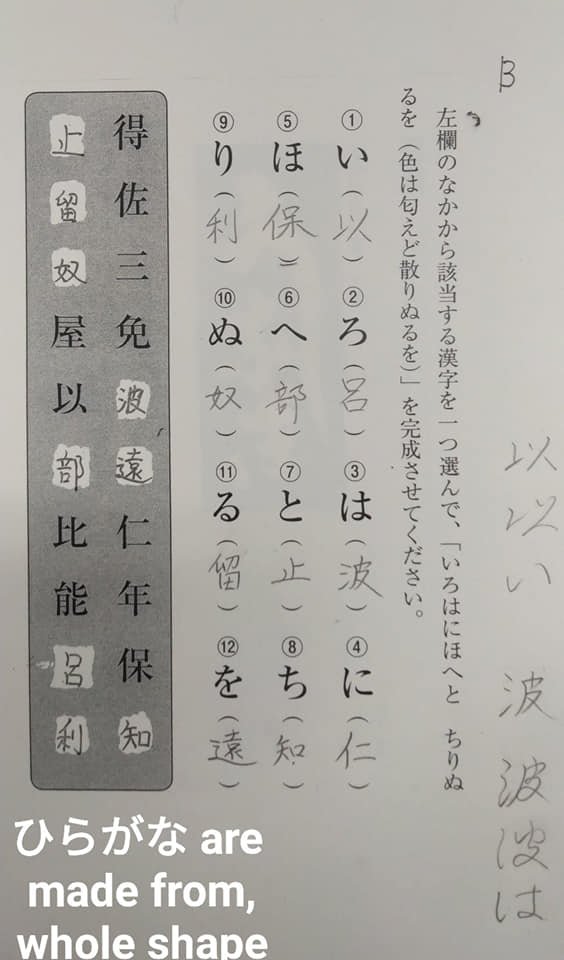 B
以 以 い 波 波 波 は
左欄のなかから該当する漢字を一つ選んで、「いろはにほへと　ちりぬ
るを（色は匂えど散りぬるを）」を完成させてください。
①い（以）②ろ（呂）③は（波）④に（仁）
⑤ほ（保）⑥へ（部）⑦と（止）⑧ち（知）
⑨り（利）⑩ぬ（奴）⑪る（留）⑫を（遠）
得 佐 三 免 波 遠 仁 年 保 知
止 留 奴 屋 以 部 比 能 呂 利
ひらがな are
made from,
whole shape